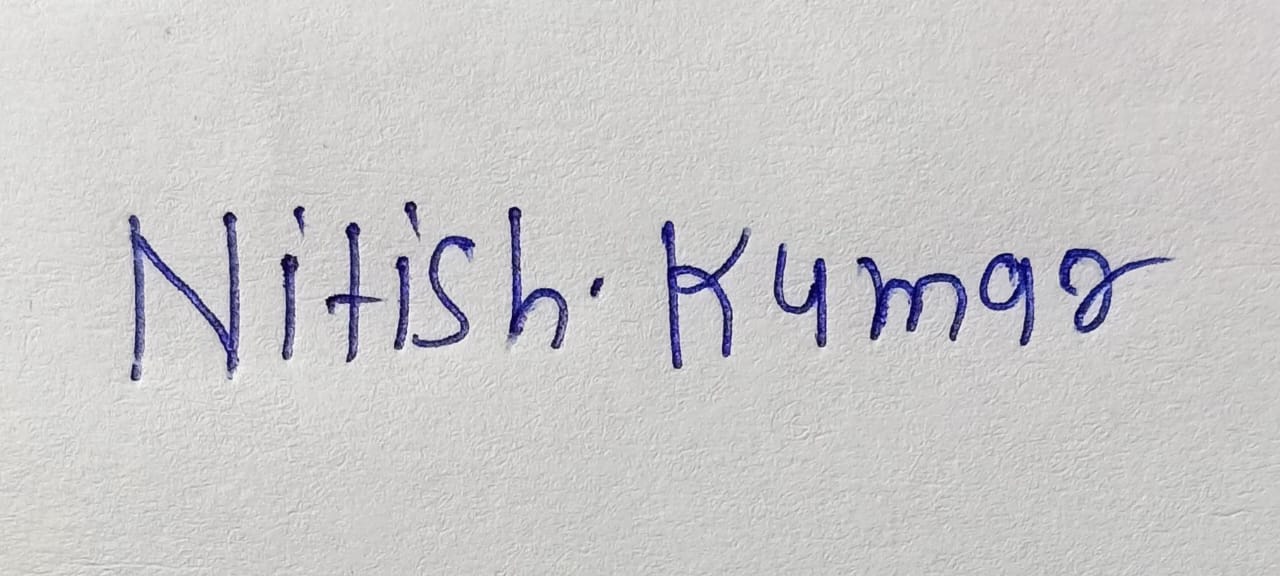 Nitish. Kumar